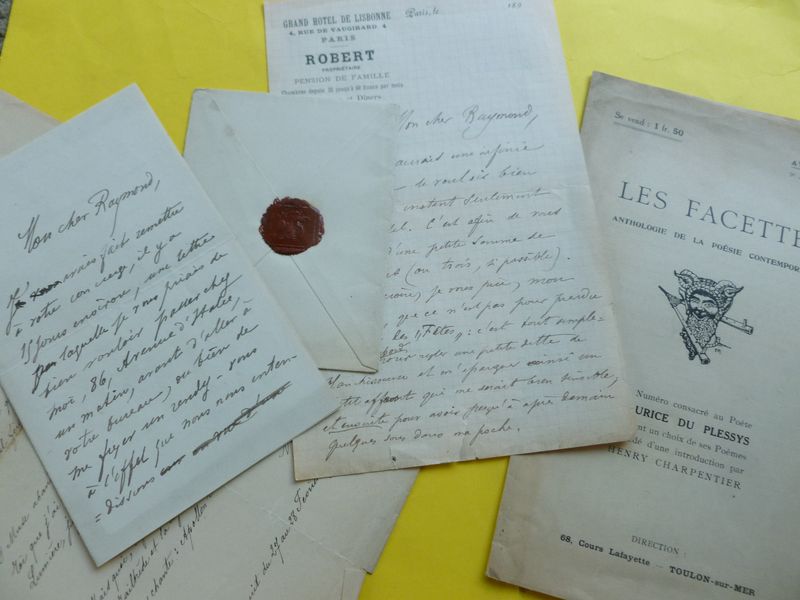 GRAND HOTEL DE LISBONNE
4, RUE DE VAUGIRARD 4
PARIS
ROBERT
PROPRIÉTAIRE
PENSION DE FAMILLE
Chambres depuis
et Dîners
Paris, le 189
Mon cher Raymond,
aurais une infinie
de vouloir bien
instant seulement
C'est afin de mes
d'une petite somme de
(ou trois, si possible).
je vous prie, mon
que ce n'est pas pour perdre
les "Fêtes": c'est tout simple-
régler une petite dette de
et m'épargner ainsi un
affront qui me serait bien sensible,
et ensuite pour avoir jusqu'à après demain
quelques sous dans ma poche.
Mon cher Raymond,
Je avais fait remettre
à votre concierge, il y a
15 jours environ, une lettre
par laquelle je vous priais de
bien vouloir passer chez
moi, 86, Avenue d'Italie,
un matin, avant d'aller à
votre bureau, ou bien de
me fixer un rendez-vous
à l'effet que nous nous enten-
=dissions
Muse
que j'ai
Lumière,
chante: Apollon
du 27 au 28
Se vend : 1 fr. 50
LES FACETTE
ANTHOLOGIE DE LA POÉSIE CONTEMPOR
Numéro consacré au Poète
URICE DU PLESSYS
nt un choix de ses Poèmes
dé d'une introduction par
HENRY CHARPENTIER
DIRECTION :
68, Cours Lafayette — TOULON-sur-MER